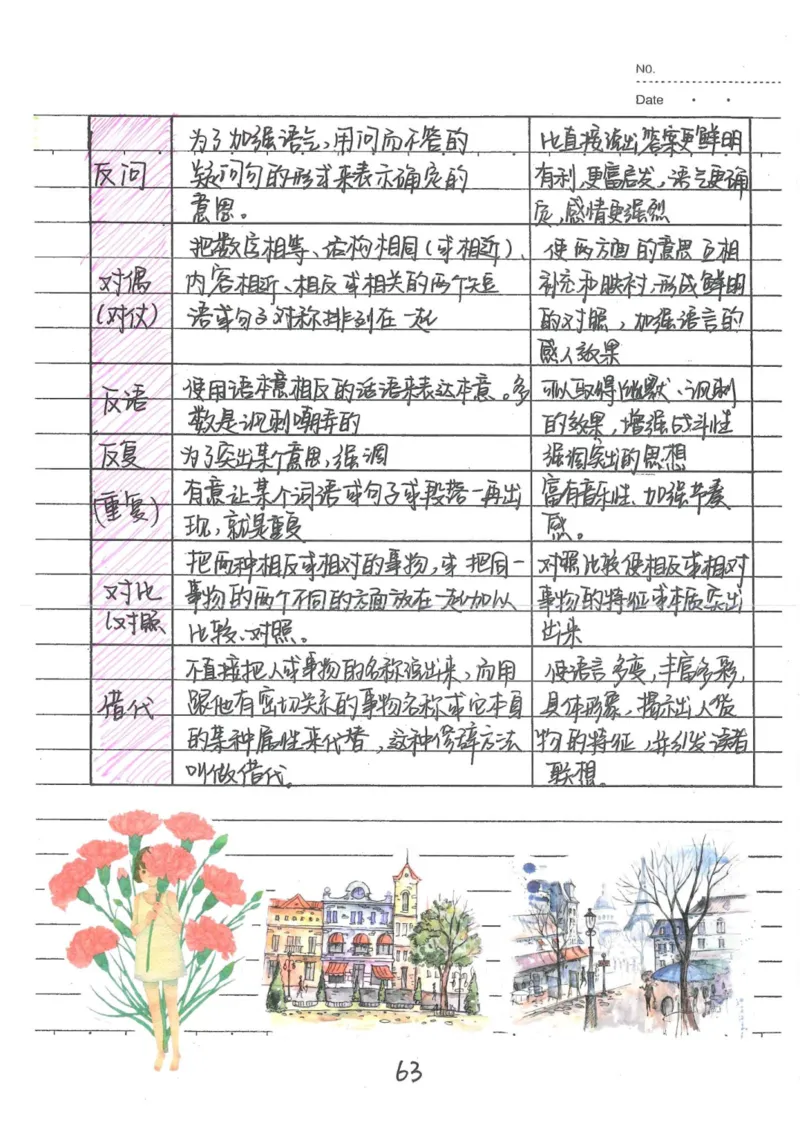 NO.
Date
反问
为了加强语气,用问而不答的
疑问句的形式来表示确定的
意思。
比直接说出答案更鲜明
有利,更富启发,语气更确
定,感情更强烈
对偶
(对仗)
把数应相等、结构相同(或相近)、
内容相近、相反或相关的两个短
语或句子对称排列在一起
使两方面的意思互相
补充和映衬,形成鲜明
的对照,加强语言的
感人效果
反语
使用语本意相反的话语来表达本意。多
数是讽刺嘲弄的
可以取得幽默、讽刺
的效果,增强战斗性
反复
(重复)
为了突出某个意思,强调
有意让某个词语或句子或段落一再出
现,就是重复
强调突出的思想
富有音乐性、加强节奏
感。
对比
(对照
把两种相反或相对的事物,或把同一
事物的两个不同的方面放在一起加以
比较、对照。
对照比较使相反或相对
事物的特征或本质突出
出来
借代
不直接把人或事物的名称说出来,而用
跟他有密切关系的事物名称或它本身
的某种属性来代替,这种修辞方法
叫做借代。
使语言多变,丰富多彩,
具体形象,揭示出人货
物的特征,并引发读者
联想。
63